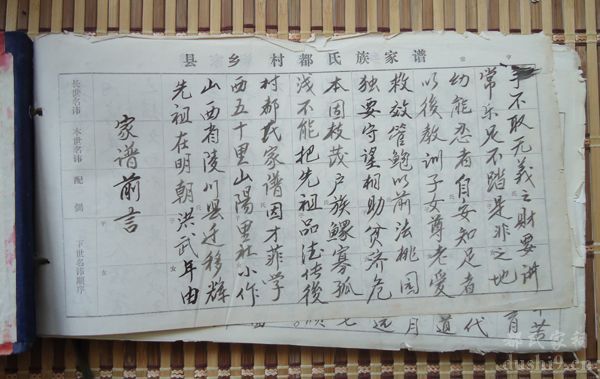 县 乡 村都氏族家谱
本世名讳 配偶 下世名讳顺序
家谱前言
先祖在明朝洪武年由
山西省陵川县迁移辉
西五十里山阳里社小作
村都氏家谱因才菲学
浅不能把先祖品德传後
本固枝茂户族鳏寡孤
独要守望相助贫济危
救效管鲍以前法桃园
以後教训子女尊老爱
幼能忍者自安知足者
常乐足不踏是非之地
手不取无义之财要讲
苦
育
代
道
月
远
dushi9.cn